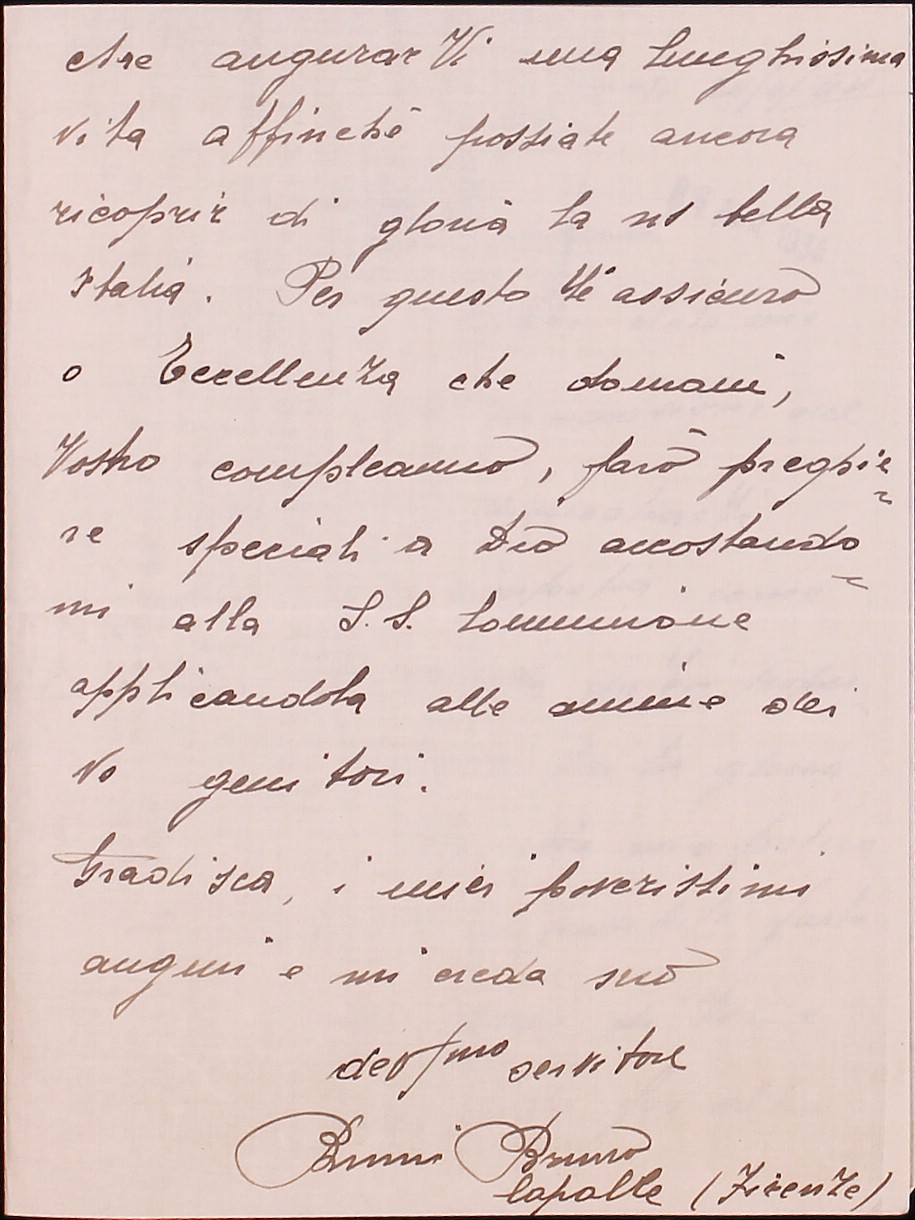 che augurarVi una lunghissima
vita affinchè possiate ancora
ricoprir di gloria la ns bella
Italia. Per questo Vi assicuro
o Eccellenza che domani,
Vostro compleanno, farò preghie=
re speciali a Dio accostando=
mi alla S.S. Comunione
applicandola alle anime dei
Vs genitori.
Gradisca, i miei poverissimi
auguri e mi creda suo
dev/mo servitore
Bruni Bruno
Capalle (Firenze)